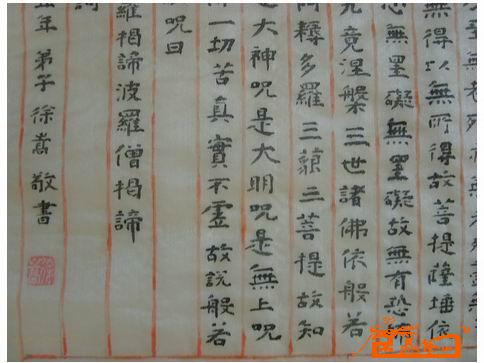 無得以無所得故菩提薩埵依
心無罣礙無罣礙故無有恐怖
究竟涅槃三世諸佛依般若
阿耨多羅三藐三菩提故知
是大神呪是大明呪是無上呪
一切苦真實不虛故說般若
呪曰
羅揭諦波羅僧揭諦
年 弟子徐嵩敬書